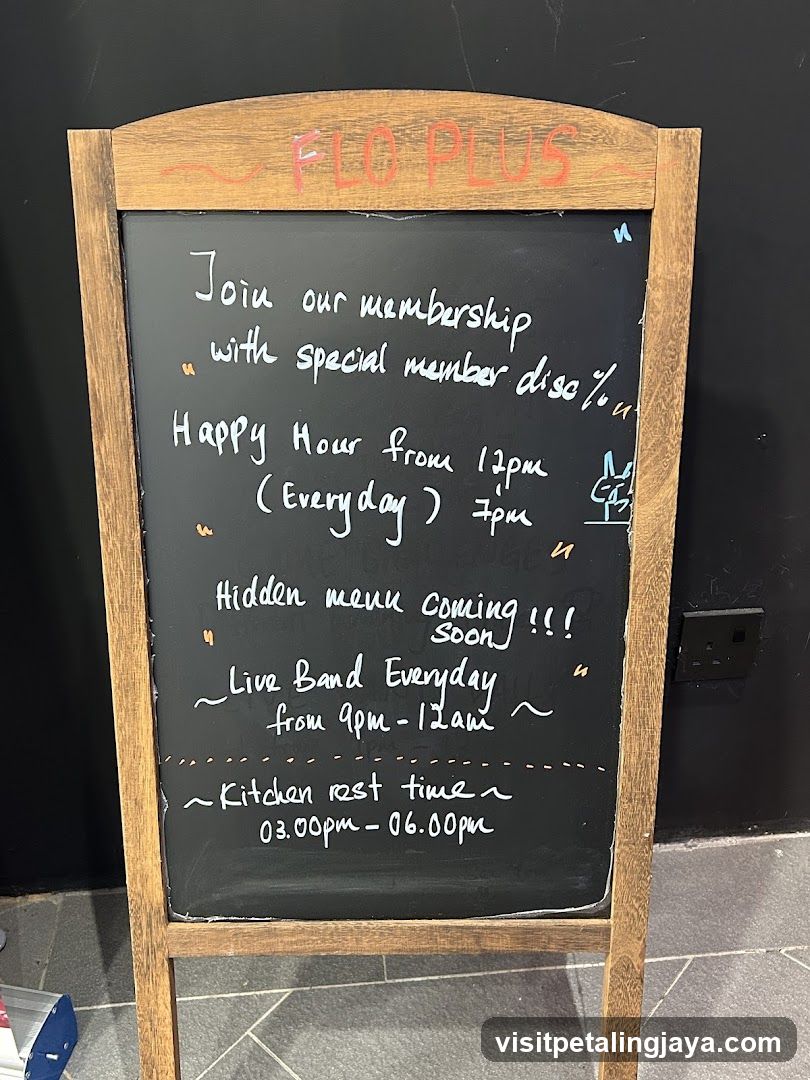 FLO PLUS
Join our membership
with special member disc %
Happy Hour from 12pm
(Everyday) 7pm
Hidden menu coming !!!
soon
~ Live Band Everyday
from 9pm - 12am ~
~ Kitchen rest time ~
03.00pm - 06.00pm
visitpetalingjaya.com